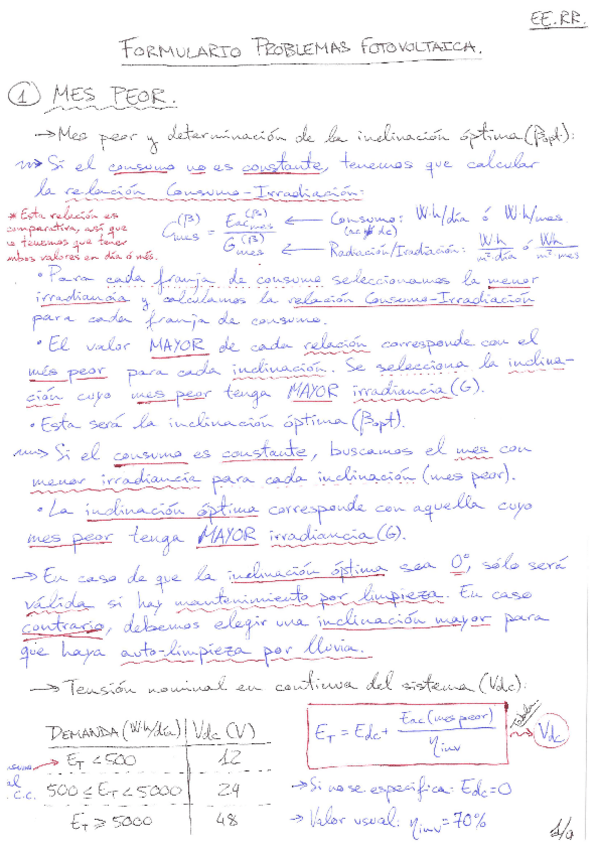 EE.RR.
FORMULARIO PROBLEMAS FOTOVOLTAICA.
1 MES PEOR.
→ Mes peor y determinación de la inclinación óptima (βopt):
Si el consumo no es constante, tenemos que calcular
la relación Consumo-Irradiación:
* Esta relación es
comparativa, así que
o tenemos que tener
ambos valores en día ó mes.
C mes (β) = Eac mes (β) / G mes (β)
← Consumo: W·h/día ó W·h/mes
(ac y dc)
← Radiación/Iradiación: W·h/m²·día ó Wh/m²·mes
• Para cada franja de consumo seleccionamos la menor
irradiancia y calculamos la relación Consumo-Irradiación
para cada franja de consumo.
• El valor MAYOR de cada relación corresponde con el
més peor para cada inclinación. Se selecciona la inclina-
ción cuyo mes peor tenga MAYOR irradiancia (G).
• Esta será la inclinación óptima (βopt).
Si el consumo es constante, buscamos el mes con
menor irradiancia para cada inclinación (mes peor).
• La inclinación óptima corresponde con aquella cuyo
mes peor tenga MAYOR irradiancia (G).
→ En caso de que la inclinación óptima sea 0º, sólo será
válida si hay mantenimiento por limpieza. En caso
contrario, debemos elegir una inclinación mayor para
que haya auto-limpieza por lluvia.
→ Tensión nominal en continua del sistema (Vdc):
DEMANDA (W·h/día) | Vdc (V)
ET < 500 | 12
500 ≤ ET < 5000 | 24
ET ≥ 5000 | 48
al
C.C.
ET = Edc + Eac (mes peor) / ηinv
Tabla
Vdc
→ Si no se especifica: Edc = 0
→ Valor usual: ηinv = 70%